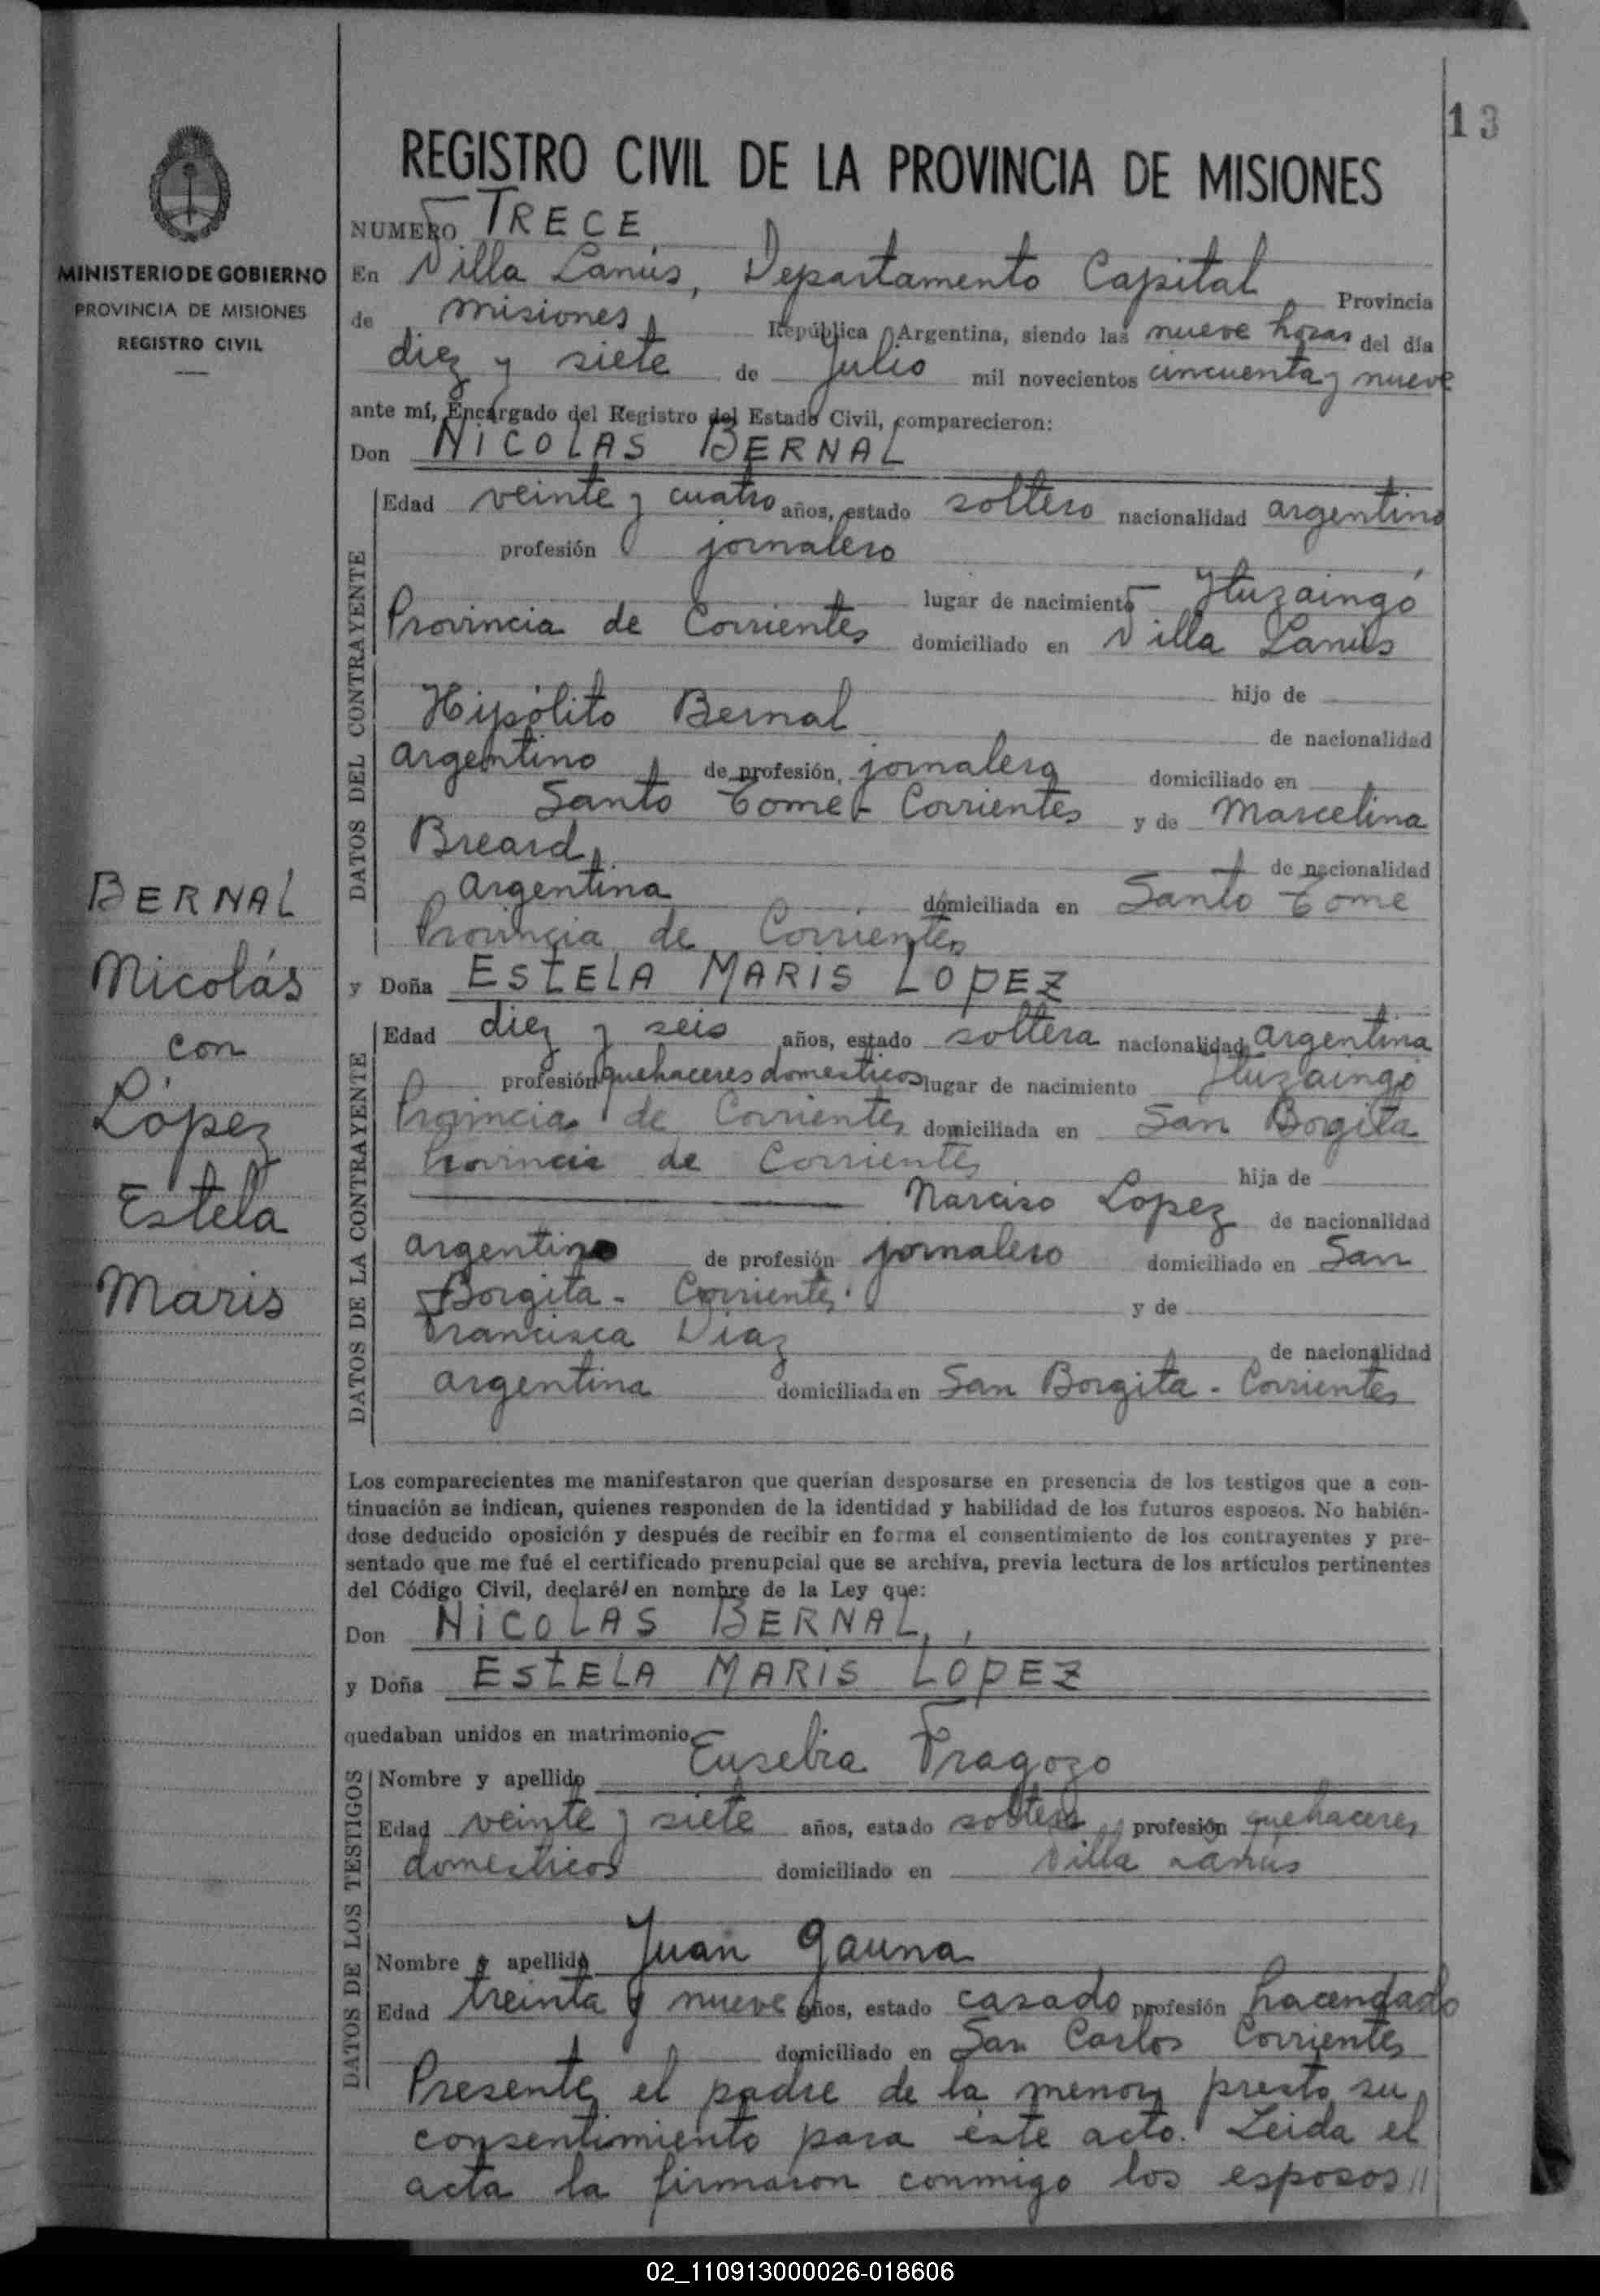 13
REGISTRO CIVIL DE LA PROVINCIA DE MISIONES
MINISTERIO DE GOBIERNO
PROVINCIA DE MISIONES
REGISTRO CIVIL
NUMERO TRECE
En Villa Lanús, Departamento Capital Provincia
de Misiones, República Argentina, siendo las nueve horas del día
diez y siete de Julio mil novecientos cincuenta y nueve
ante mí, Encargado del Registro del Estado Civil, comparecieron:
Don NICOLAS BERNAL
DATOS DEL CONTRAYENTE
Edad veinte y cuatro años, estado soltero nacionalidad argentino
profesión jornalero
lugar de nacimiento Ituzaingó
Provincia de Corrientes domiciliado en Villa Lanús
hijo de
Hipólito Bernal de nacionalidad
argentino, de profesión, jornalero domiciliado en
Santo Tome - Corrientes y de Marcelina
Breard, de nacionalidad
argentina domiciliada en Santo Tome
Provincia de Corrientes
y Doña ESTELA MARIS LOPEZ
DATOS DE LA CONTRAYENTE
Edad diez y seis años, estado soltera nacionalidad argentina
profesión quehaceres domesticos lugar de nacimiento Ituzaingó
Provincia de Corrientes domiciliada en San Borgita
Provincia de Corrientes hija de
Narciso Lopez de nacionalidad
argentino de profesión jornalero domiciliado en San
Borgita - Corrientes. y de
Francisca Diaz de nacionalidad
argentina domiciliada en San Borgita - Corrientes
Los comparecientes me manifestaron que querían desposarse en presencia de los testigos que a con-
tinuación se indican, quienes responden de la identidad y habilidad de los futuros esposos. No habién-
dose deducido oposición y después de recibir en forma el consentimiento de los contrayentes y pre-
sentado que me fué el certificado prenupcial que se archiva, previa lectura de los artículos pertinentes
del Código Civil, declaré en nombre de la Ley que:
Don NICOLAS BERNAL,
y Doña ESTELA MARIS LOPEZ
quedaban unidos en matrimonio
DATOS DE LOS TESTIGOS
Nombre y apellido Eusebia Fragozo
Edad veinte y siete años, estado soltera, profesión quehaceres
domesticos domiciliado en Villa Lanús
Nombre y apellido Juan Gauna
Edad treinta y nueve años, estado casado profesión hacendado
domiciliado en San Carlos Corrientes
Presente el padre de la menor, presta su
consentimiento para este acto. Leida el
acta la firmaron conmigo los esposos //
BERNAL
Nicolás
con
López
Estela
Maris
02_110913000026-018606